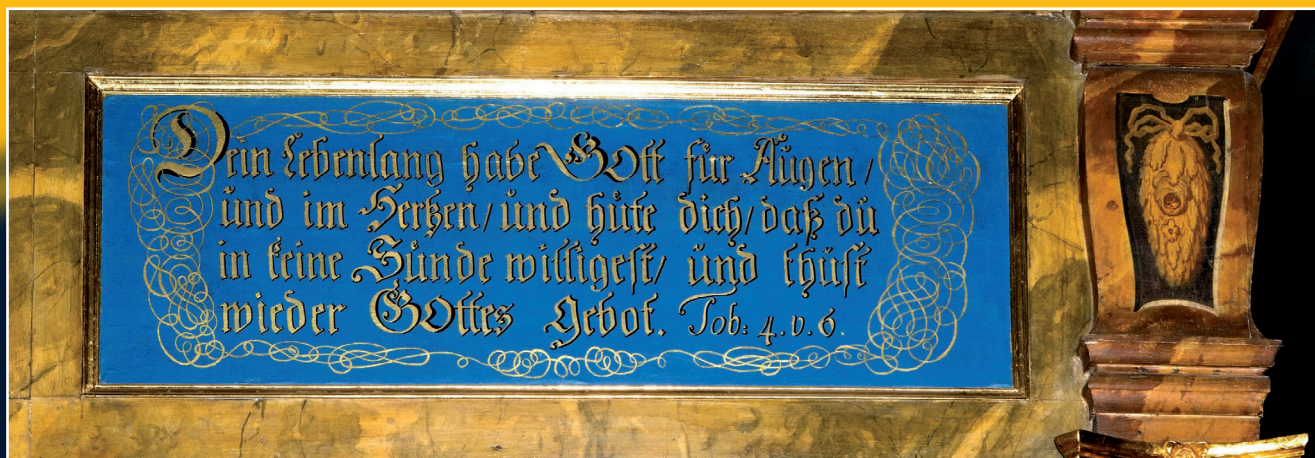 Dein Lebenlang habe GOtt für Augen /
und im Hertzen/ und hüte dich/ daß du
in keine Sünde willigest/ und thust
wieder GOttes Gebot. Tob: 4. v. 6.